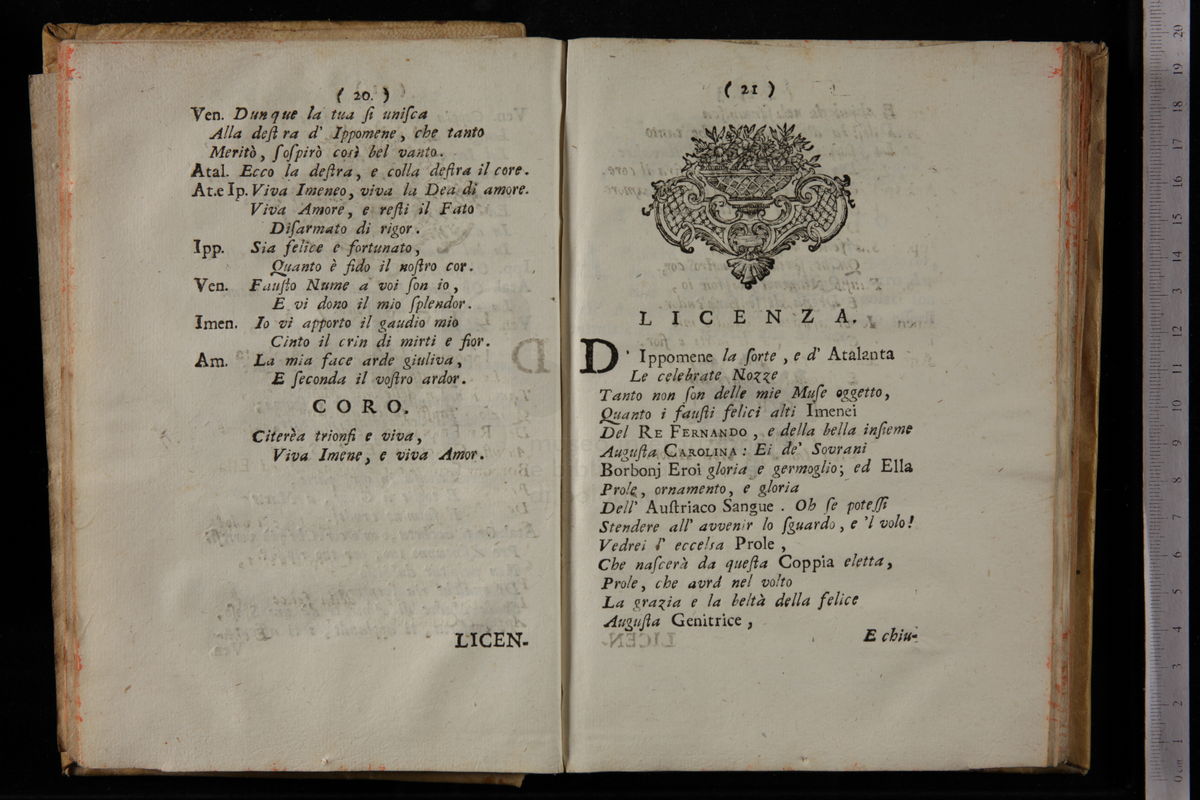 ( 20. )
Ven. Dunque la tua ſi uniſca
Alla deſtra d' Ippomene, che tanto
Meritò, ſoſpirò così bel vanto.
Atal. Ecco la deſtra, e colla deſtra il core.
At.e Ip. Viva Imeneo, viva la Dea di amore.
Viva Amore, e reſti il Fato
Diſarmato di rigor.
Ipp. Sia felice e fortunato,
Quanto è fido il noſtro cor.
Ven. Fauſto Nume a voi ſon io,
E vi dono il mio ſplendor.
Imen. Io vi apporto il gaudio mio
Cinto il crin di mirti e fior.
Am. La mia face arde giuliva,
E ſeconda il voſtro ardor.
CORO.
Citerèa trionfi e viva,
Viva Imene, e viva Amor.
LICEN-
( 21 )
LICENZA.
D' Ippomene la ſorte, e d' Atalanta
Le celebrate Nozze
Tanto non ſon delle mie Muſe oggetto,
Quanto i fauſti felici alti Imenei
Del RE FERNANDO, e della bella inſieme
Auguſta CAROLINA: Ei de' Sovrani
Borbonj Eroi gloria e germoglio; ed Ella
Prole, ornamento, e gloria
Dell' Auſtriaco Sangue. Oh ſe poteſſi
Stendere all' avvenir lo ſguardo, e 'l volo!
Vedrei l' eccelsa Prole,
Che naſcerà da queſta Coppia eletta,
Prole, che avrà nel volto
La grazia e la beltà della felice
Auguſta Genitrice,
E chiu-